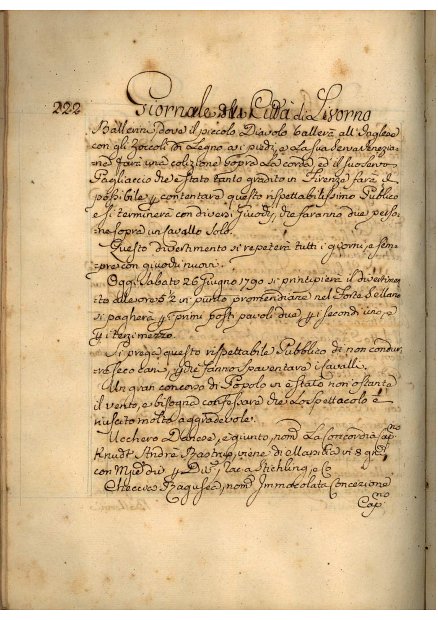 222 Giornale della Città di Livorno
Ballerini, dove il piccolo Diavolo ballerà all'Inglese
con gli Zoccoli di Legno ai piedi, e La sua
me farà una colizione sopra La corda ed il suo
Pagliaccio che è stato tanto gradito in Firenze farà il
possibile p contentare questo rispettabilissimo Publico
e si terminerà con diversi Giuochi, che faranno due perso-
ne sopra un Cavallo Solo.
Questo divertimento si repeterà tutti i giorni, e sem-
pre con giuochi nuovi.
Oggi Sabato 26 Giugno 1790 si principierà il divertimen-
to alle ore 5½ si punto nel
si pagherà p i primi posti pavoli due p i secondi uno, e
p i terzi mezzo.
Si prega questo rispettabile Pubblico di non condur-
re seco cani, p che fanno spaventare i Cavalli.
Un gran concorso di Popolo vi è stato non ostante
il vento, e bisogna confessare che Lo spettacolo è
riuscito molto aggradevole.
Ucchero Danese, è giunto, nom. La Concordia, cap.no
Knudt Andre Bastrup, viene di in 8 gni,
con p Dis. Stichling, e C.
Altro Raguseo, nom. Immacolata Concezione
Cap.no